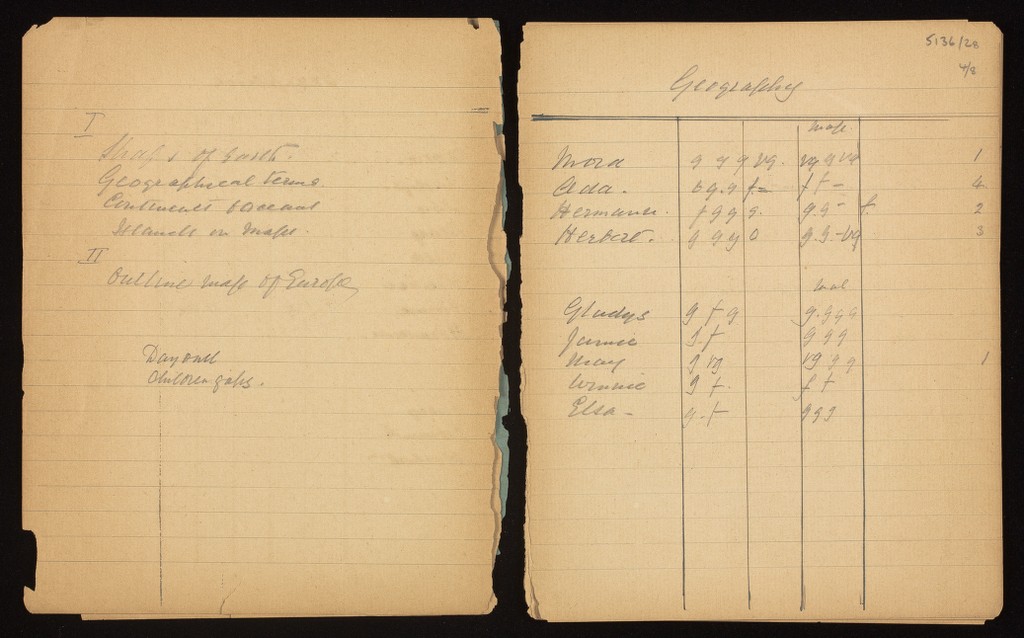 I
Shape of Earth.
Geographical terms.
Continents & oceans
Islands on Map.
II
Outline Map of Europe
Day out
Children
5136/28
4/8
Geography
Map.
Mora g g g vg. vg g vg 1
Ada. g. g f - f f - 4
Hermann. f g g g. g. g - f. 2
Herbert. g g g 0 g. g. - vg 3
Map
Gladys g f g g. g g g
g. f g g g
May g vg vg g g 1
Winnie g f. f f
Elsa - g. f g g g